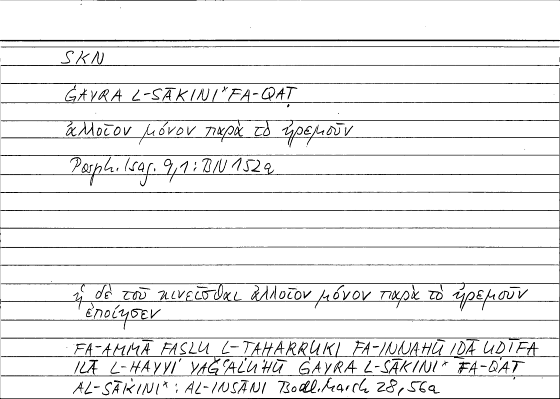 SKN
ĠAYRA L-SĀKINI* FA-QAṬ
ἀλλοῖον μόνον παρὰ τὸ ἠρεμοῦν
Porph. Isag. 9,1 : BN 152a
ἡ δὲ τοῦ κινεῖσθαι ἀλλοῖον μόνον παρὰ τὸ ἠρεμοῦν
ἐποίησεν
FA-AMMĀ FASLU L-TAHARRUKI FA-INNAHŪ IḎĀ UḌĪFA
ILĀ L-HAYYI YAǦʿALUHŪ ĠAYRA L-SĀKINI* FA-QAṬ
AL-SĀKINI* : AL-INSĀNI Bodl. Marsh 28, 56a